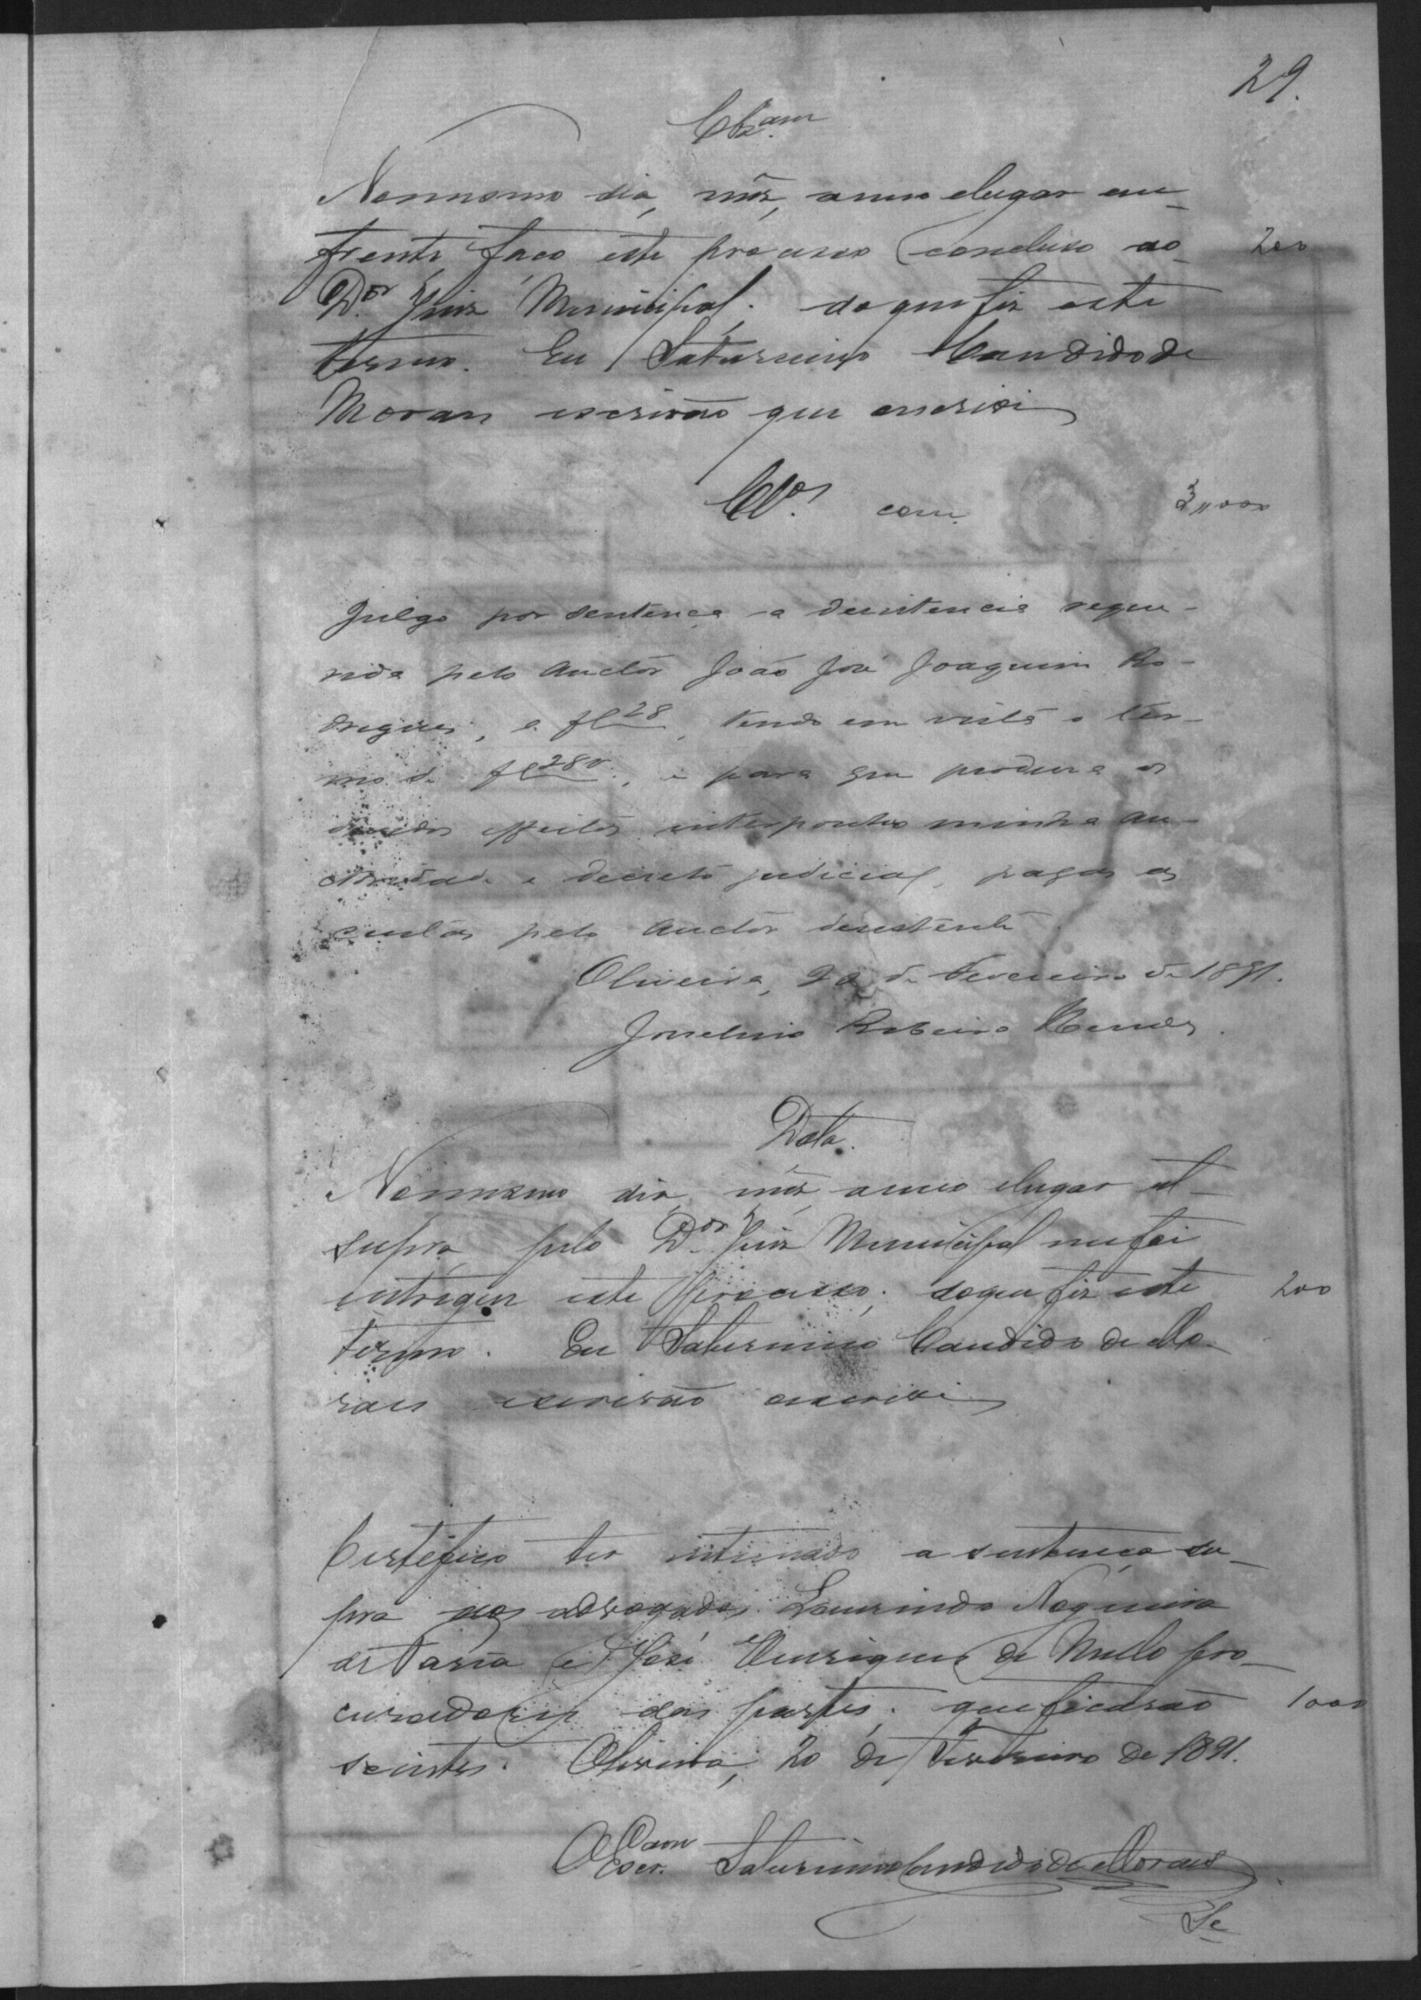 29.
Clz.am
No mesmo dia, mês, anno e lugar em
frente faço este processo concluso ao 200
D.or Juiz Municipal. do que fiz este
termo. Eu Saturnino Candido de
Moraes escrivão que escrevi
Cl.os com 3,,000
Julgo por sentença a desistencia reque-
rida pelo Auctor João José Joaquim Ro-
drigues, a fl 28, tendo em vista o ter-
mo de fl 28v., e para que produza os
devidos effeitos interponho minha au-
ctoridade e decreto judicial, pagas as
custas pelo Auctor desistente.
Oliveira, 20 de Fevereiro de 1891.
Ribeiro Mendes.
Data.
No mesmo dia, mês, anno e lugar ut
supra, pelo D.or Juiz Municipal me foi
entregue este processo; do que fiz este 200
termo. Eu Saturnino Candido de Mo-
raes escrivão escrevi
Certifico ter intimado a sentença su-
pra aos advogados Laurindo Nogueira
de Faria e José Henriques de Mello pro-
curadores das partes; que ficarão 1000
scientes. Oliveira, 20 de Fevereiro de 1891.
O Escr.am Saturnino Candido de Moraes